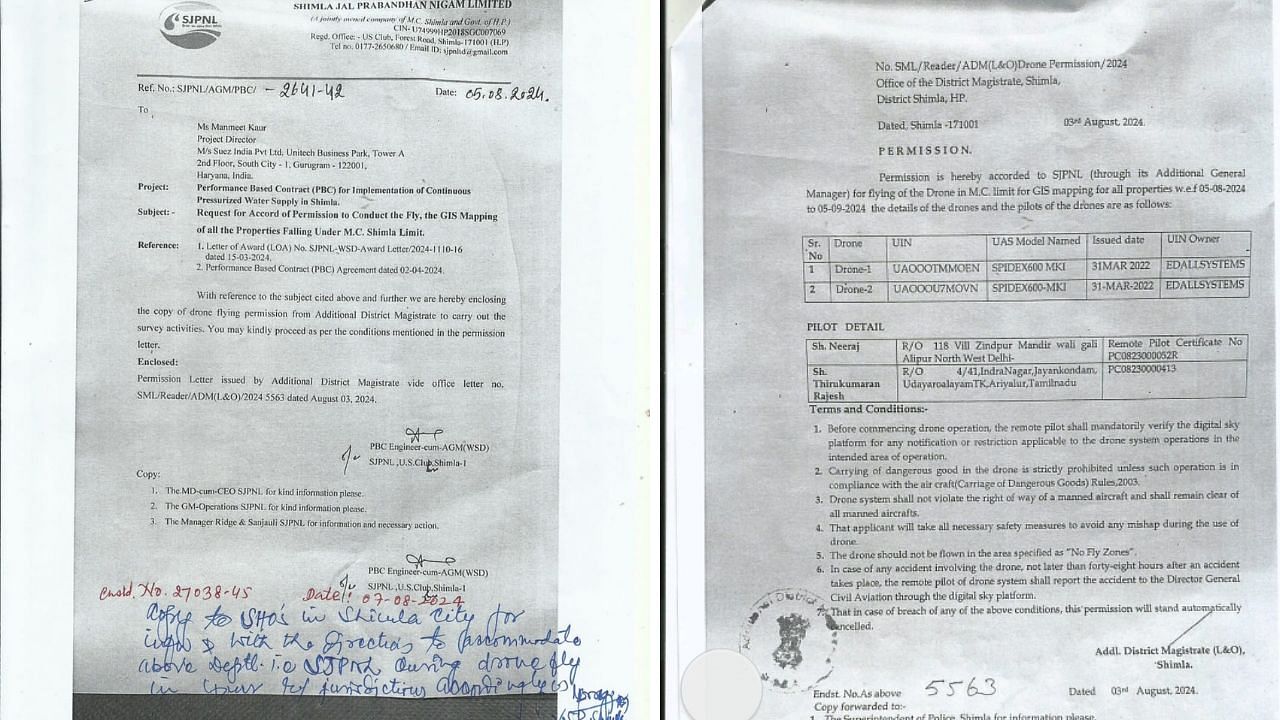 SJPNL
SHIMLA JAL PRABANDHAN NIGAM LIMITED
(A jointly owned company of M.C. Shimla and Govt. of H.P.)
CIN- U74999HP2018SGC007069
Regd. Office: - US Club, Forest Road, Shimla-171001 (H.P)
Tel no. 0177-2650680 / Email ID: sjpnltd@gmail.com
Ref. No.: SJPNL/AGM/PBC/ - 2641-42 Date: 05.08.2024.
To
Ms Manmeet Kaur
Project Director
M/s Suez India Pvt Ltd, Unitech Business Park, Tower A
2nd Floor, South City - 1, Gurugram - 122001,
Haryana, India.
Project: Performance Based Contract (PBC) for Implementation of Continuous
Pressurized Water Supply in Shimla.
Subject: - Request for Accord of Permission to Conduct the Fly, the GIS Mapping
of all the Properties Falling Under M.C. Shimla Limit.
Reference: 1. Letter of Award (LOA) No. SJPNL-WSD-Award Letter/2024-1110-16
dated 15-03-2024.
2. Performance Based Contract (PBC) Agreement dated 02-04-2024.
With reference to the subject cited above and further we are hereby enclosing
the copy of drone flying permission from Additional District Magistrate to carry out the
survey activities. You may kindly proceed as per the conditions mentioned in the permission
letter.
Enclosed:
Permission Letter issued by Additional District Magistrate vide office letter no.
SML/Reader/ADM(L&O)/2024 5563 dated August 03, 2024.
PBC Engineer-cum-AGM(WSD)
SJPNL ,U.S.Club,Shimla-1
Copy:
1. The MD-cum-CEO SJPNL for kind information please.
2. The GM-Operations SJPNL for kind information please.
3. The Manager Ridge & Sanjauli SJPNL for information and necessary action.
PBC Engineer-cum-AGM(WSD)
SJPNL,U.S.Club,Shimla-1
Endst. No. 27038-45 Date: 07-08-2024
Copy to SHO's in Shimla City for
with the directions to accommodate
above Deptt. i.e SJPNL during drone fly
in jurisdictions accordingly
No. SML/Reader/ADM(L&O)Drone Permission/2024
Office of the District Magistrate, Shimla,
District Shimla, HP.
Dated, Shimla -171001 03rd August, 2024.
PERMISSION.
Permission is hereby accorded to SJPNL (through its Additional General
Manager) for flying of the Drone in M.C. limit for GIS mapping for all properties w.e.f 05-08-2024
to 05-09-2024 the details of the drones and the pilots of the drones are as follows:
Sr. No Drone UIN UAS Model Named Issued date UIN Owner
1 Drone-1 UAOOOTMMOEN SPIDEX600 MKI 31MAR 2022 EDALLSYSTEMS
2 Drone-2 UAOOOU7MOVN SPIDEX600-MKI 31-MAR-2022 EDALLSYSTEMS
PILOT DETAIL
Sh. Neeraj R/O 118 Vill Zindpur Mandir wali gali Alipur North West Delhi- Remote Pilot Certificate No PC0823000052R
Sh. Thirukumaran Rajesh R/O 4/41,IndraNagar,Jayankondam, UdayaroalayamTK,Ariyalur,Tamilnadu PC08230000413
Terms and Conditions:-
1. Before commencing drone operation, the remote pilot shall mandatorily verify the digital sky
platform for any notification or restriction applicable to the drone system operations in the
intended area of operation.
2. Carrying of dangerous good in the drone is strictly prohibited unless such operation is in
compliance with the air craft(Carriage of Dangerous Goods) Rules,2003.
3. Drone system shall not violate the right of way of a manned aircraft and shall remain clear of
all manned aircrafts.
4. That applicant will take all necessary safety measures to avoid any mishap during the use of
drone.
5. The drone should not be flown in the area specified as "No Fly Zones".
6. In case of any accident involving the drone, not later than forty-eight hours after an accident
takes place, the remote pilot of drone system shall report the accident to the Director General
Civil Aviation through the digital sky platform.
7. That in case of breach of any of the above conditions, this permission will stand automatically
cancelled.
District
Addl. District Magistrate (L&O),
Shimla.
Endst. No.As above 5563 Dated 03rd August, 2024.
Copy forwarded to:-
1. The Superintendent of Police, Shimla for information please.